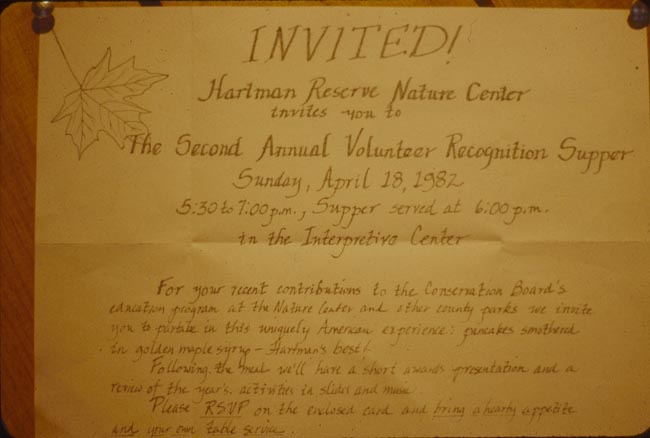 INVITED!
Hartman Reserve Nature Center
invites you to
The Second Annual Volunteer Recognition Supper
Sunday, April 18, 1982
5:30 to 7:00 p.m., Supper served at 6:00 p.m.
in the Interpretive Center
For your recent contributions to the Conservation Board's
education program at the Nature Center and other county parks we invite
you to partake in this uniquely American experience: pancakes smothered
in golden maple syrup - Hartman's best!
Following the meal we'll have a short awards presentation and a
review of the year's activities in slides and music.
Please RSVP on the enclosed card and bring a hearty appetite
and your own table service.